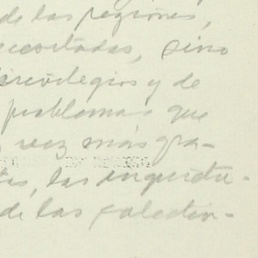 de las regiones,
recortadas, sino
privilegios y de
problemas que
vez más gra-
las inquietu-
de las colectiv-